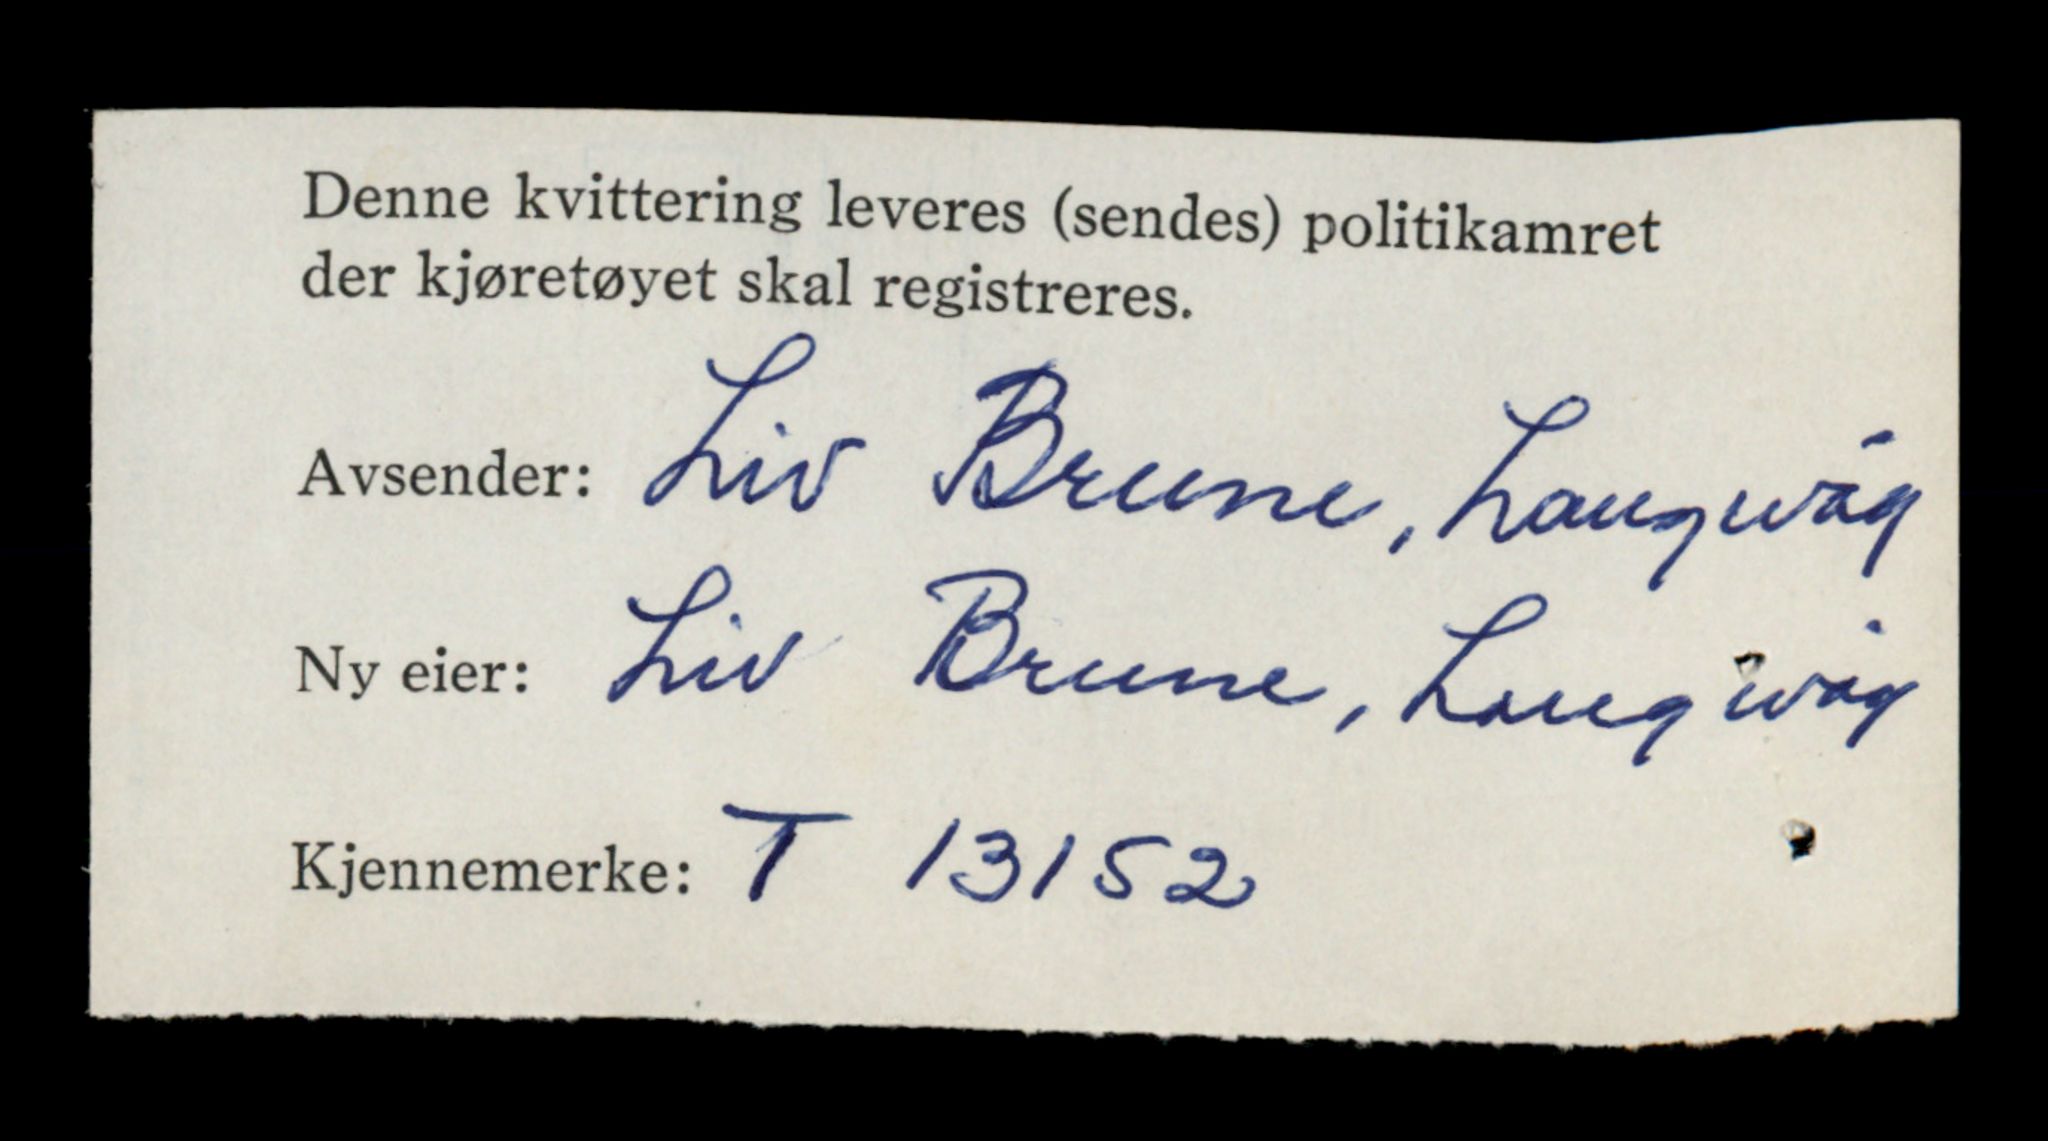 Denne kvittering leveres (sendes) politikamret
der kjøretøyet skal registreres.
Avsender: Liv Brune, Langwåg
Ny eier: Liv Brune, Langwåg
Kjennemerke: T 13152